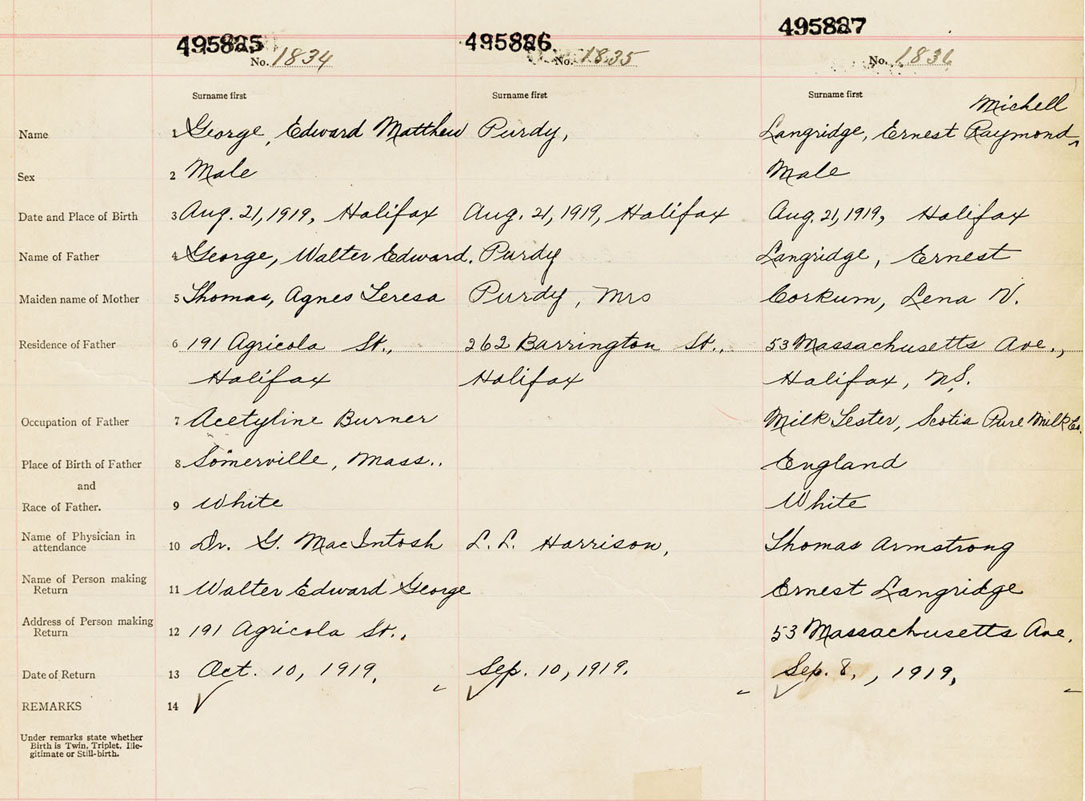 495825 495826 495827
No. 1834 No. 1835 No. 1836
Surname first Surname first Surname first
Michell
Name 1 George, Edward Matthew Purdy, Langridge, Ernest Raymond,
Sex 2 Male Male
Date and Place of Birth 3 Aug. 21, 1919, Halifax Aug. 21, 1919, Halifax Aug. 21, 1919, Halifax
Name of Father 4 George, Walter Edward. Purdy Langridge, Ernest
Maiden name of Mother 5 Thomas, Agnes Teresa Purdy, Mrs Corkum, Lena V.
Residence of Father 6 191 Agricola St., 262 Barrington St., 53 Massachusetts Ave.,
Halifax Halifax Halifax, N.S.
Occupation of Father 7 Acetyline Burner Milk Tester, Scotia Pure Milk Co.
Place of Birth of Father 8 Somerville, Mass.. England
and
Race of Father. 9 White White
Name of Physician in
attendance 10 Dr. G. MacIntosh L. L. Harrison, Thomas Armstrong
Name of Person making
Return 11 Walter Edward George Ernest Langridge
Address of Person making
Return 12 191 Agricola St., 53 Massachusetts Ave.
Date of Return 13 Oct. 10, 1919. Sep. 10, 1919. Sep. 8, , 1919,
REMARKS 14
Under remarks state whether
Birth is Twin, Triplet, Ille-
gitimate or Still-birth.